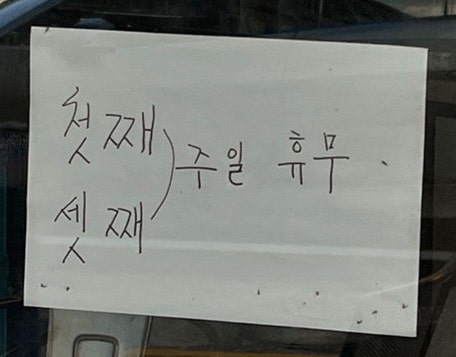 첫째
셋째) 주일 휴무.